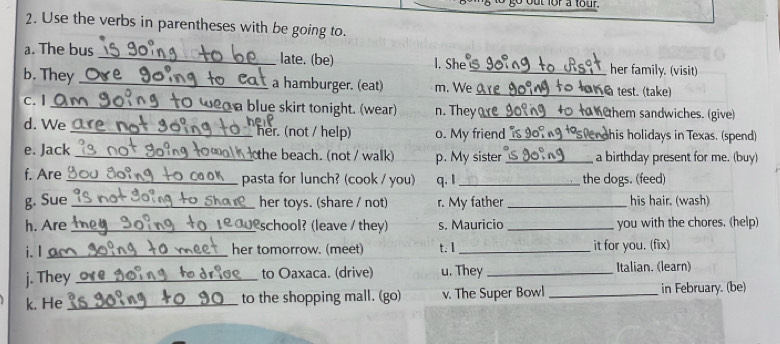 go out for a tour.
2. Use the verbs in parentheses with be going to.
a. The bus is going to be late. (be)
b. They are going to eat a hamburger. (eat)
c. I am going to wear a blue skirt tonight. (wear)
d. We are not going to help her. (not / help)
e. Jack is not going to walk to the beach. (not / walk)
f. Are you going to cook pasta for lunch? (cook / you)
g. Sue is not going to share her toys. (share / not)
h. Are they going to leave school? (leave / they)
i. I am going to meet her tomorrow. (meet)
j. They are going to drive to Oaxaca. (drive)
k. He is going to go to the shopping mall. (go)
l. She is going to visit her family. (visit)
m. We are going to take a test. (take)
n. They are going to take them sandwiches. (give)
o. My friend is going to spend his holidays in Texas. (spend)
p. My sister is going a birthday present for me. (buy)
q. I the dogs. (feed)
r. My father his hair. (wash)
s. Mauricio you with the chores. (help)
t. I it for you. (fix)
u. They Italian. (learn)
v. The Super Bowl in February. (be)